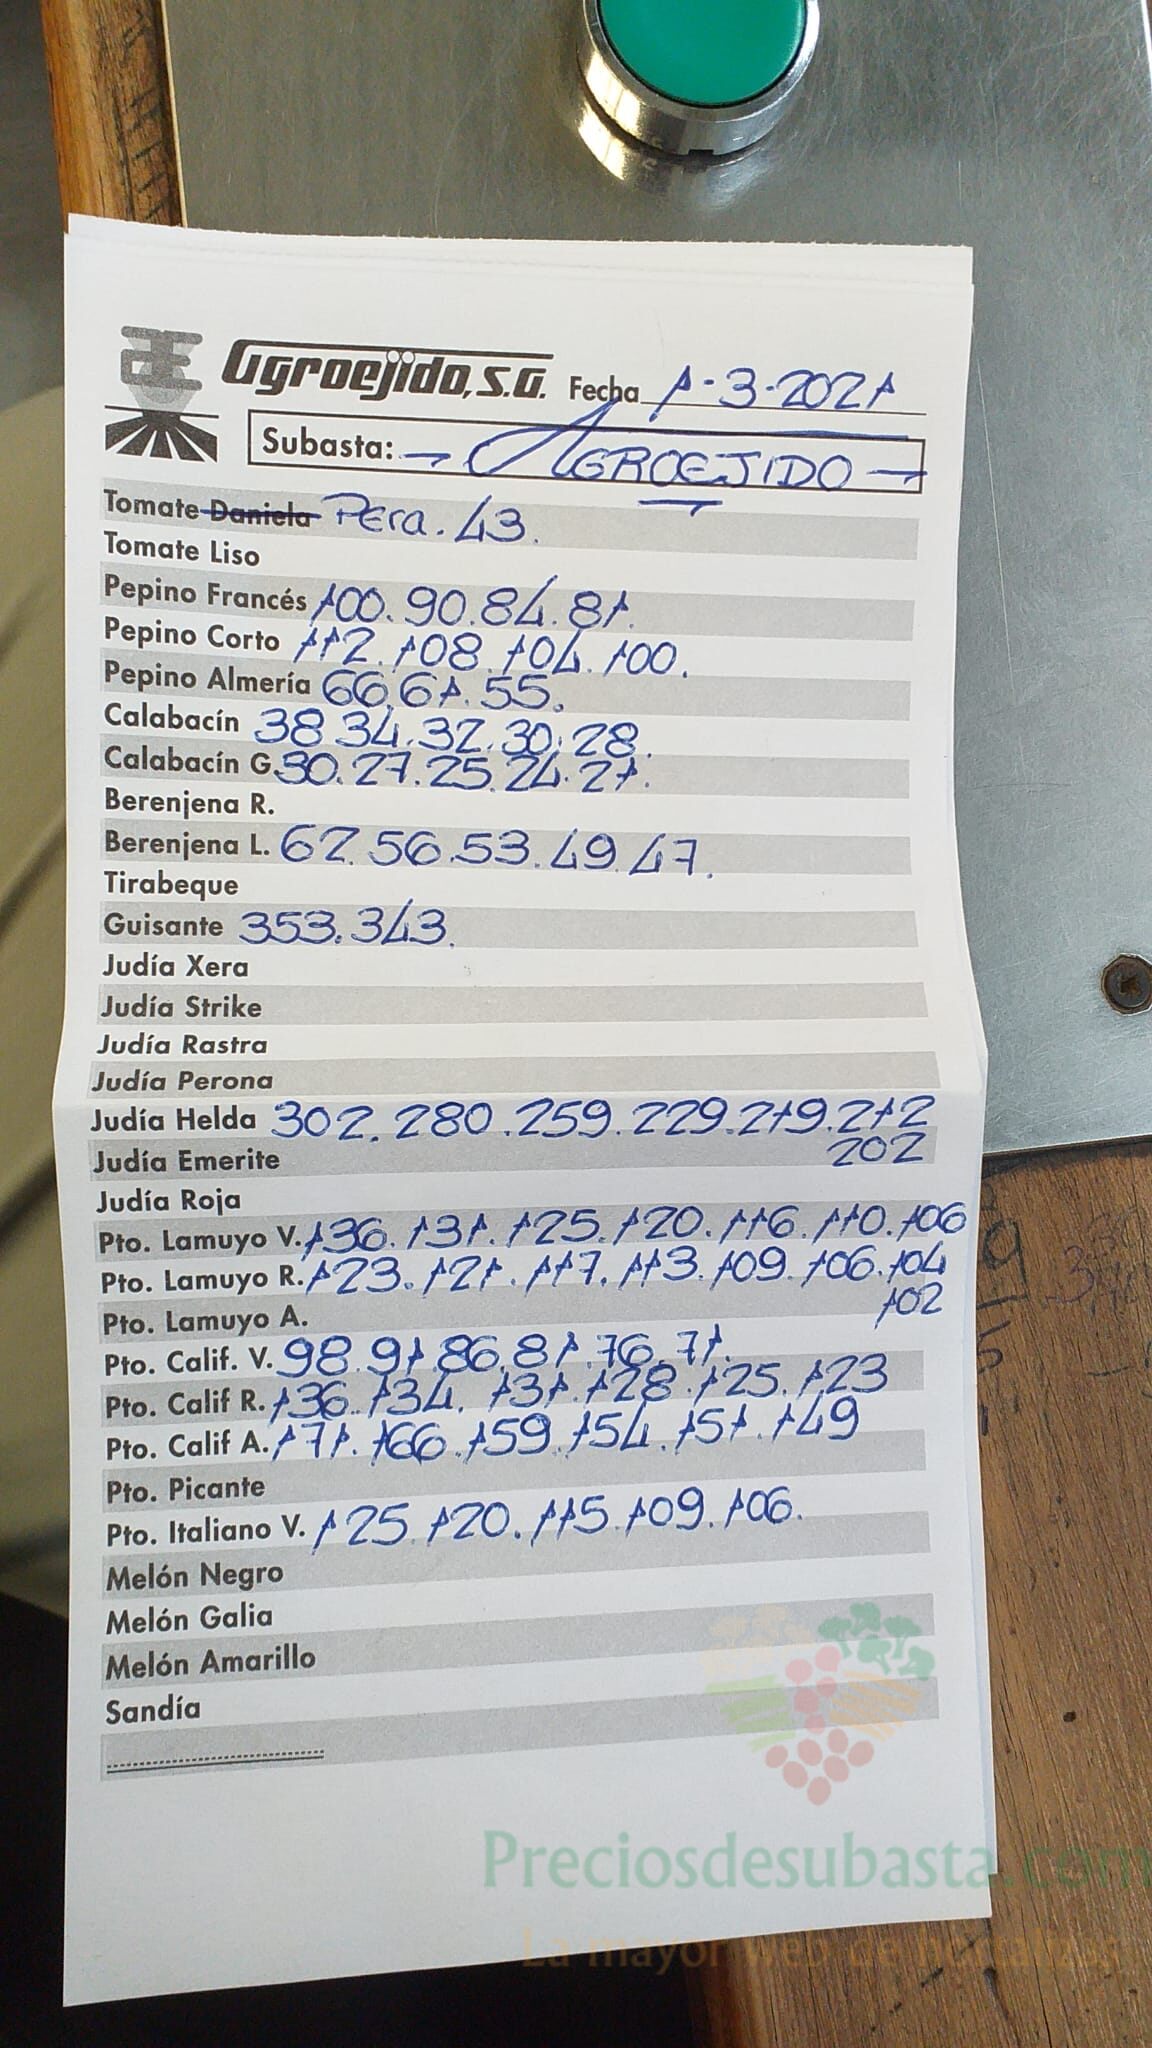 Agroejido, S.A. Fecha 1-3-2021
Subasta: - AGROEJIDO -
Tomate Daniela Pera. 43.
Tomate Liso
Pepino Francés 100. 90. 84. 81.
Pepino Corto 112. 108. 104. 100.
Pepino Almería 66. 61. 55.
Calabacín 38 34. 32. 30. 28.
Calabacín G. 30. 27. 25. 24. 21.
Berenjena R.
Berenjena L. 62. 56. 53. 49. 47.
Tirabeque
Guisante 353. 343.
Judía Xera
Judía Strike
Judía Rastra
Judía Perona
Judía Helda 302. 280. 259. 229. 219. 212
202
Judía Emerite
Judía Roja
Pto. Lamuyo V. 136. 131. 125. 120. 116. 110. 106
Pto. Lamuyo R. 123. 121. 117. 113. 109. 106. 104
102
Pto. Lamuyo A.
Pto. Calif. V. 98. 91. 86. 81. 76. 71.
Pto. Calif R. 136. 134. 131. 128. 125. 123
Pto. Calif A. 171. 166. 159. 154. 151. 149
Pto. Picante
Pto. Italiano V. 125. 120. 115. 109. 106.
Melón Negro
Melón Galia
Melón Amarillo
Sandía
Preciosdesubasta.com
La mayor web de hortalizas